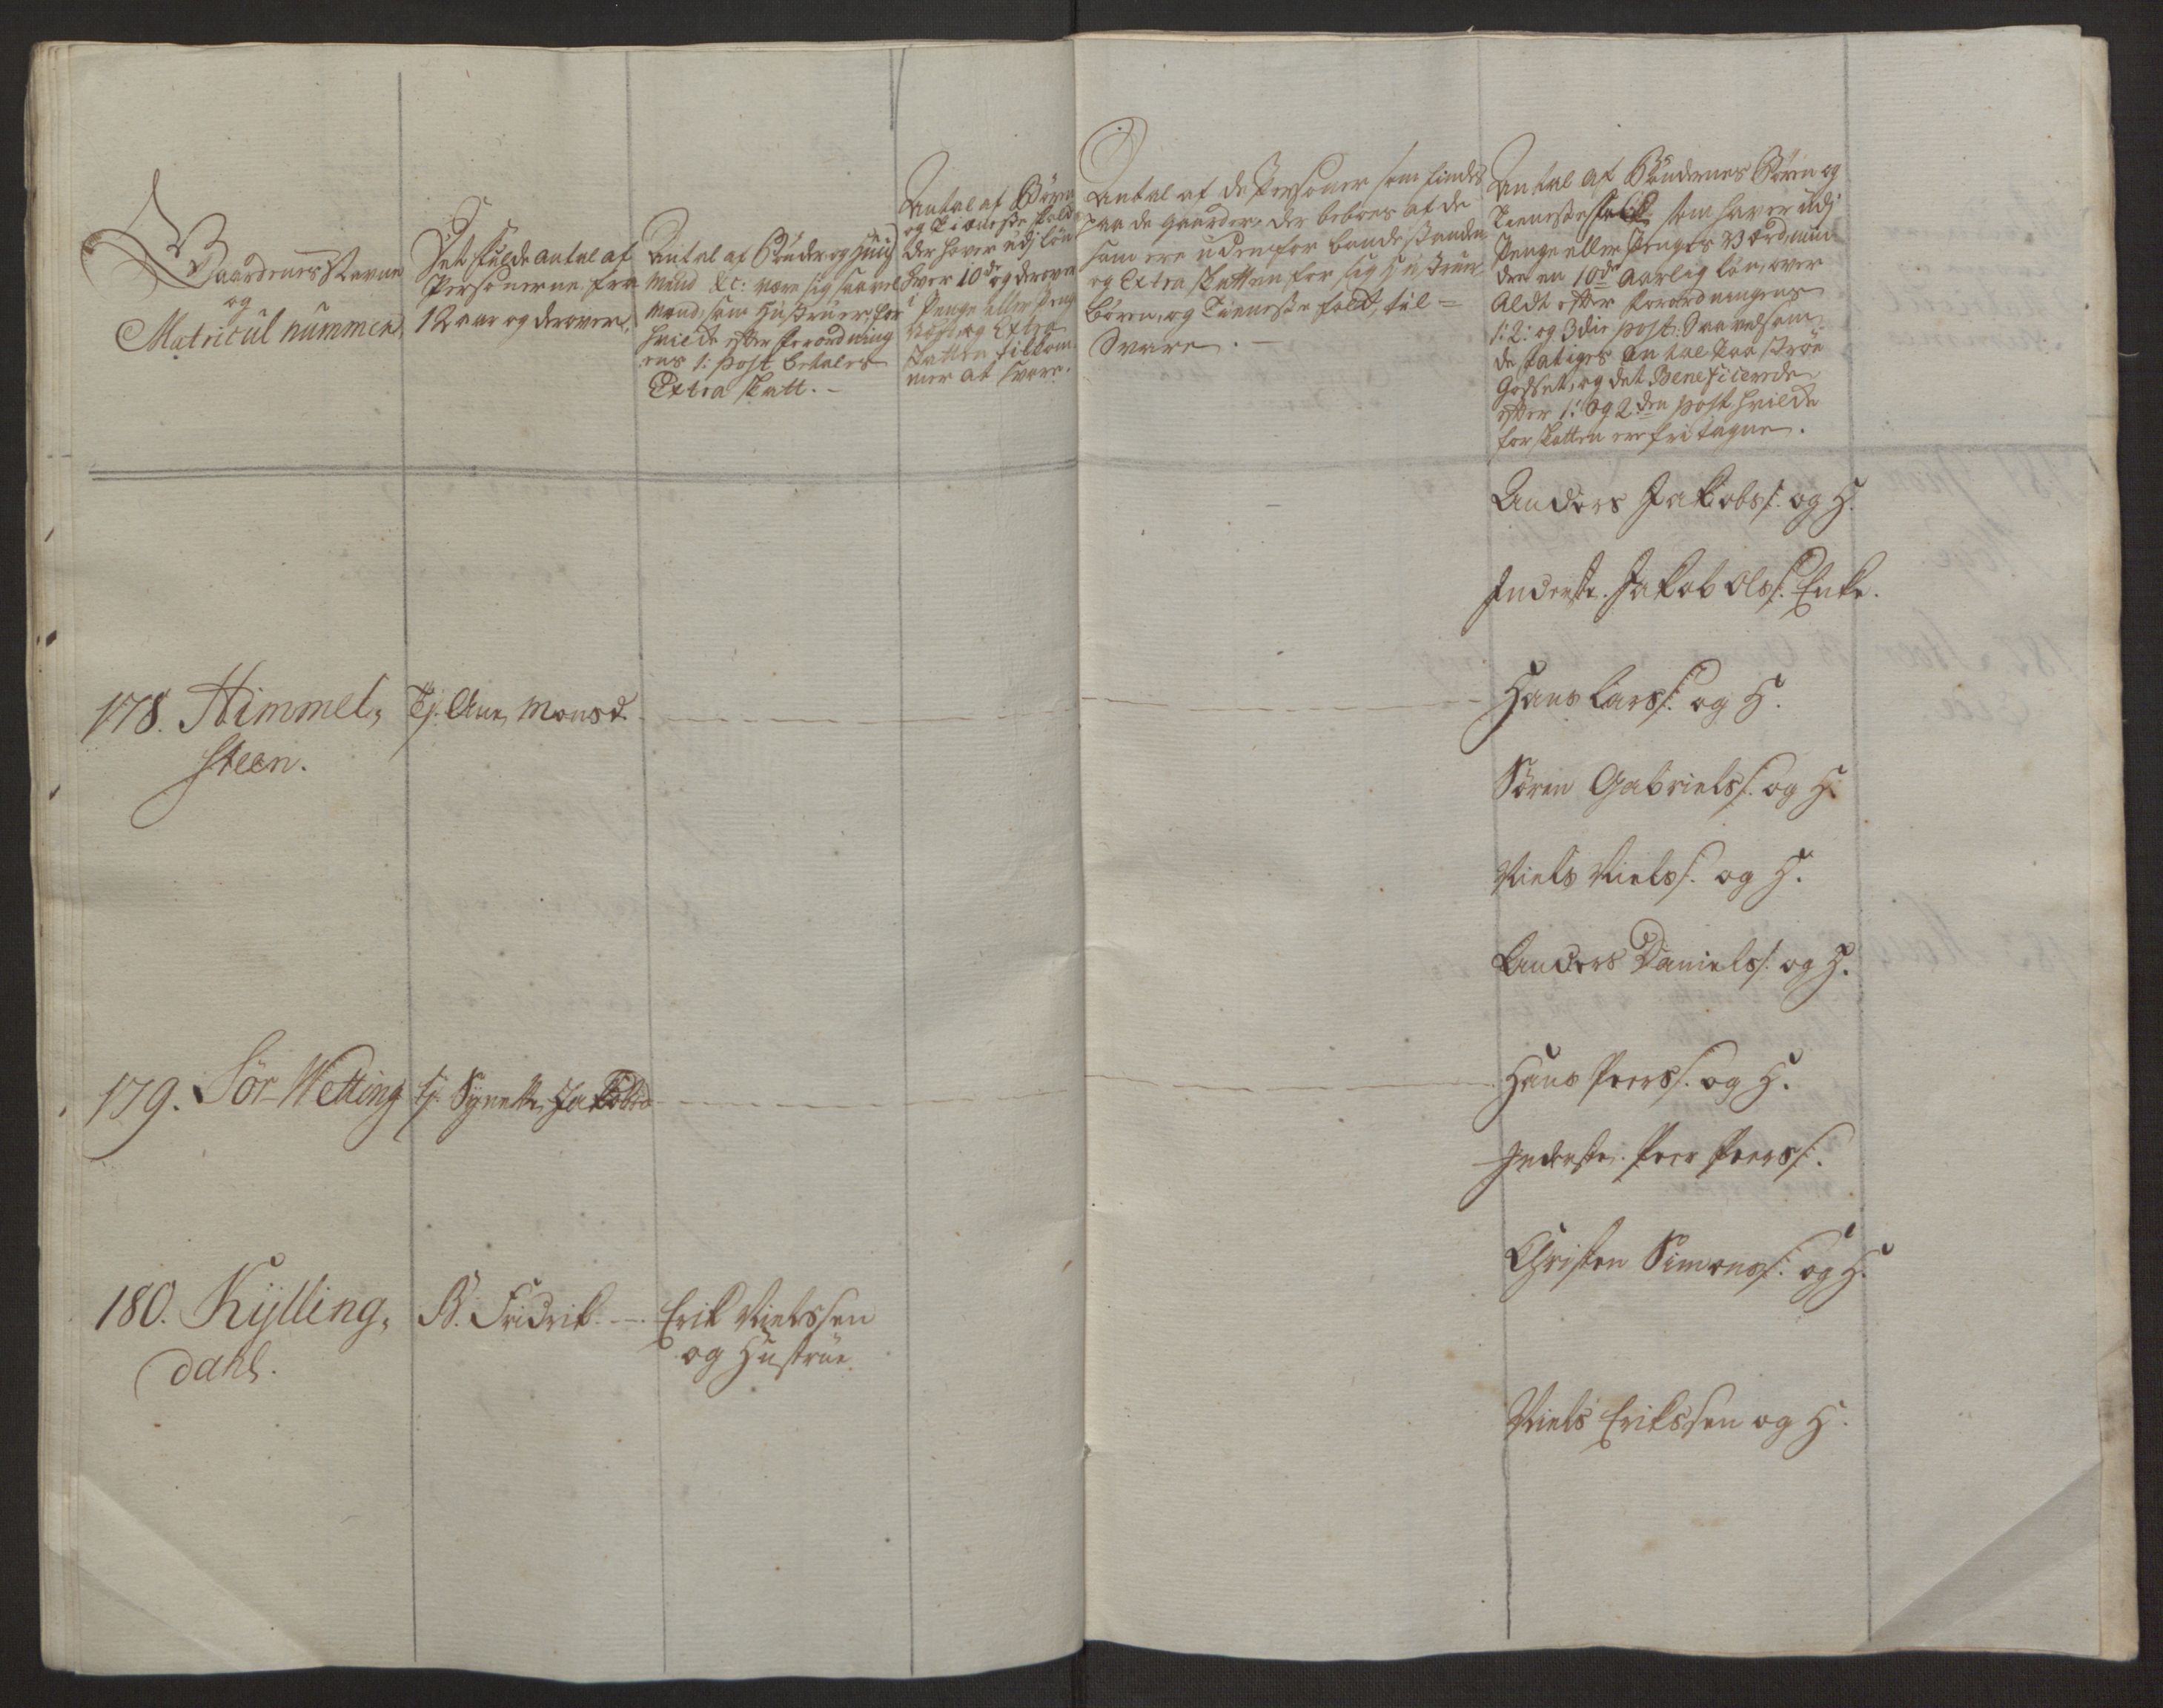 Gaardenes Navne
og
Matricul nummer
Det fulde antal af
Personerne fra
12 aar og derover,
Antal af Bönder og Huus
mænd &c: være sig saavel
mænd, som Hüstrüer, for
hvilke efter Forordning
ens 1: post betales
Extra skatt. -
Antal af Börn
og Tieneste folk
der haver udj lön
over 10de og derover
i Penge eller Penge
Værd, og Extra
skatten tilkom
mer at svare.
Antal af de Personer som findes
paa de gaarder, der beboes af de
som ere uden for bondestanden
og Extra skatten for sig Hüstrüer
Börn, og Tieneste folk, til =
Svare. -
Antal af Böndernes Börn og
Tienestefolk, som haver udj
Penge eller Penges Værd, min
dre en 10de aarlig lön, over
Aldt efter forordningens
1: 2: og 3die post. Saavelsom
de fatiges antal paa ströe
Godset, og det Beneficerede
efter 1: og 2den post, hvilke
for skatten ere fritagne.
Anders Jakobs: og H.
Inderste. Jakob Ols: Enke.
178. Himmel,
steen.
Tj. Ane Monsd.
Hans Lars: og H.
Sören Gabriels: og H.
Niels Niels: og H.
Anders Daniels: og H.
179. Sör Wetting
tj. Synette Jakobsd
Hans Peers: og H.
Inderste. Peer Peers:
Christen Simons: og H.
180. Kylling,
dahl.
B. Fridrik. -
Erik Nielssen
og Hüstrüe.
Niels Erikssen og H.